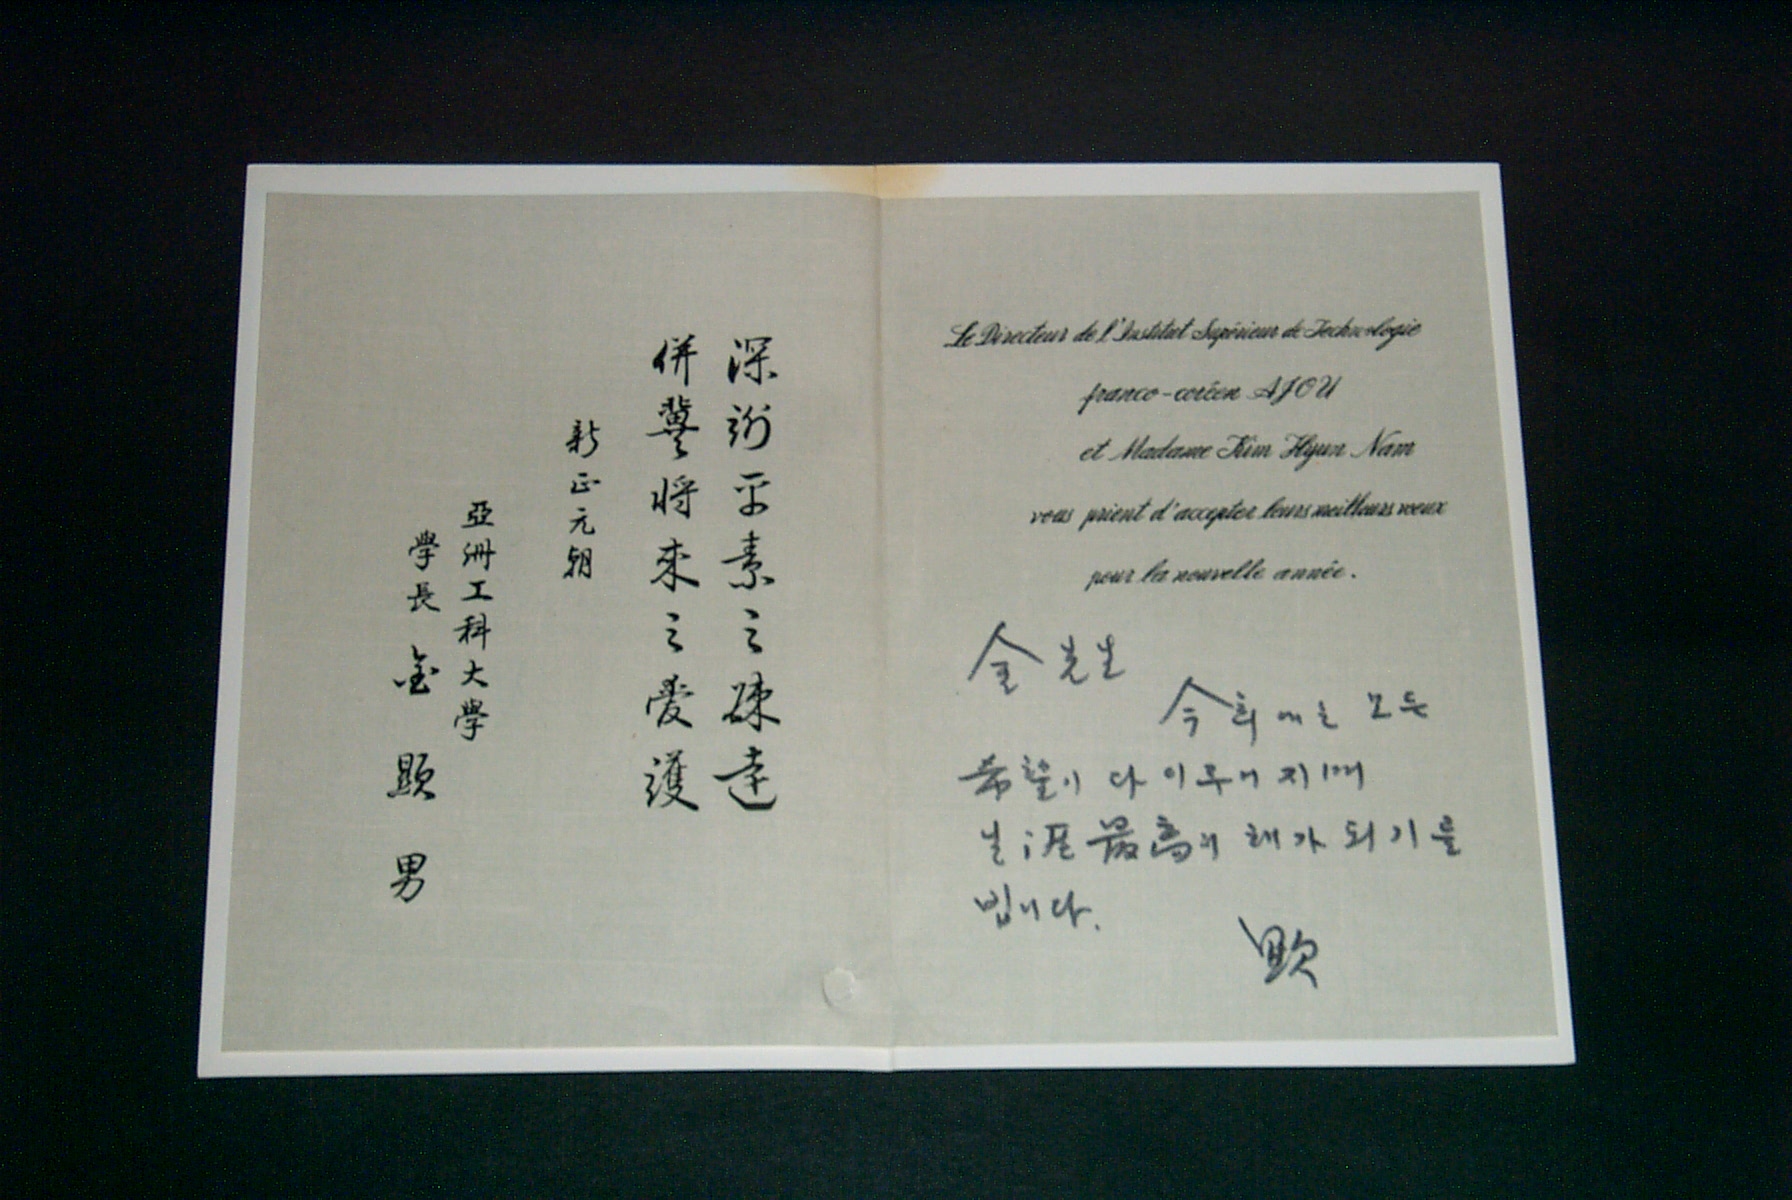 深謝平素之疎達
併冀将來之愛護
新正元朝
亞洲工科大學
學長 金顯男
Le Directeur de l'Institut Supérieur de Technologie
franco-coréen AJOU
et Madame Kim Hyun Nam
vous prient d'accepter leurs meilleurs voeux
pour la nouvelle année.
金 先生
모든
希望이 다 이루어지며
生涯 最高의 해가 되기를
빕니다.
顯